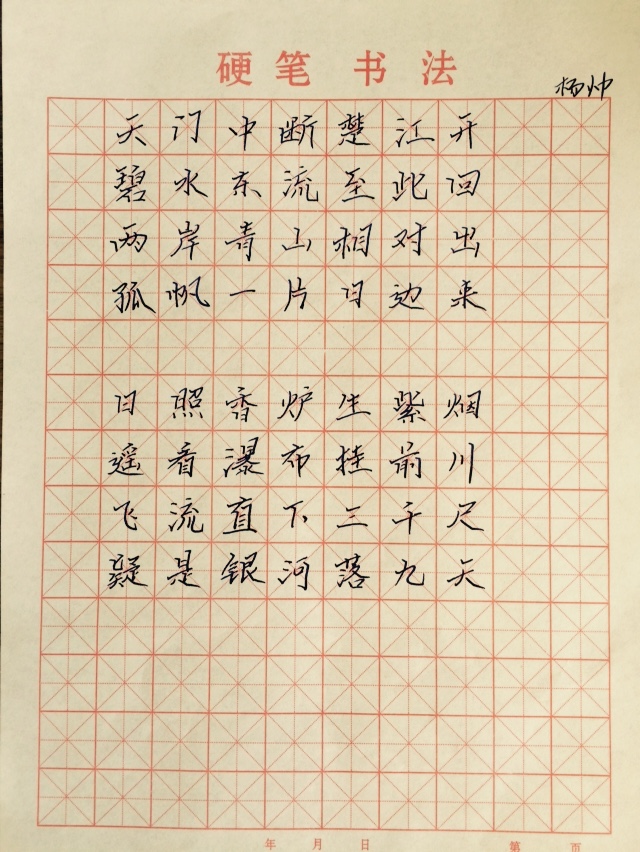 硬笔书法
杨帅
天门中断楚江开
碧水东流至此回
两岸青山相对出
孤帆一片日边来
日照香炉生紫烟
遥看瀑布挂前川
飞流直下三千尺
疑是银河落九天
年 月 日 第 页